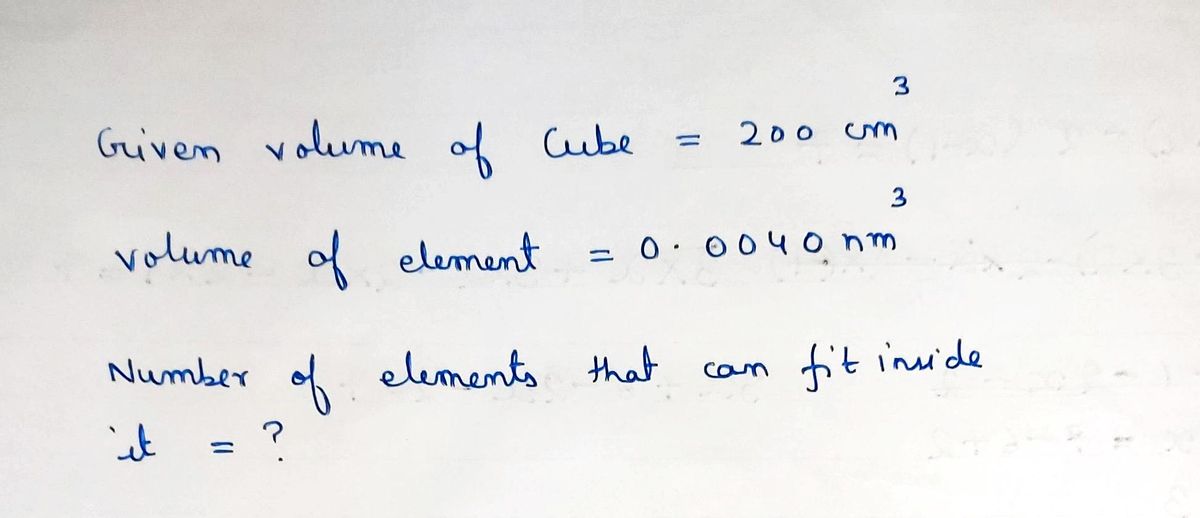 Given volume of Cube = 200 cm³
volume of element = 0.0040 nm³
Number of elements that can fit inside
it = ?